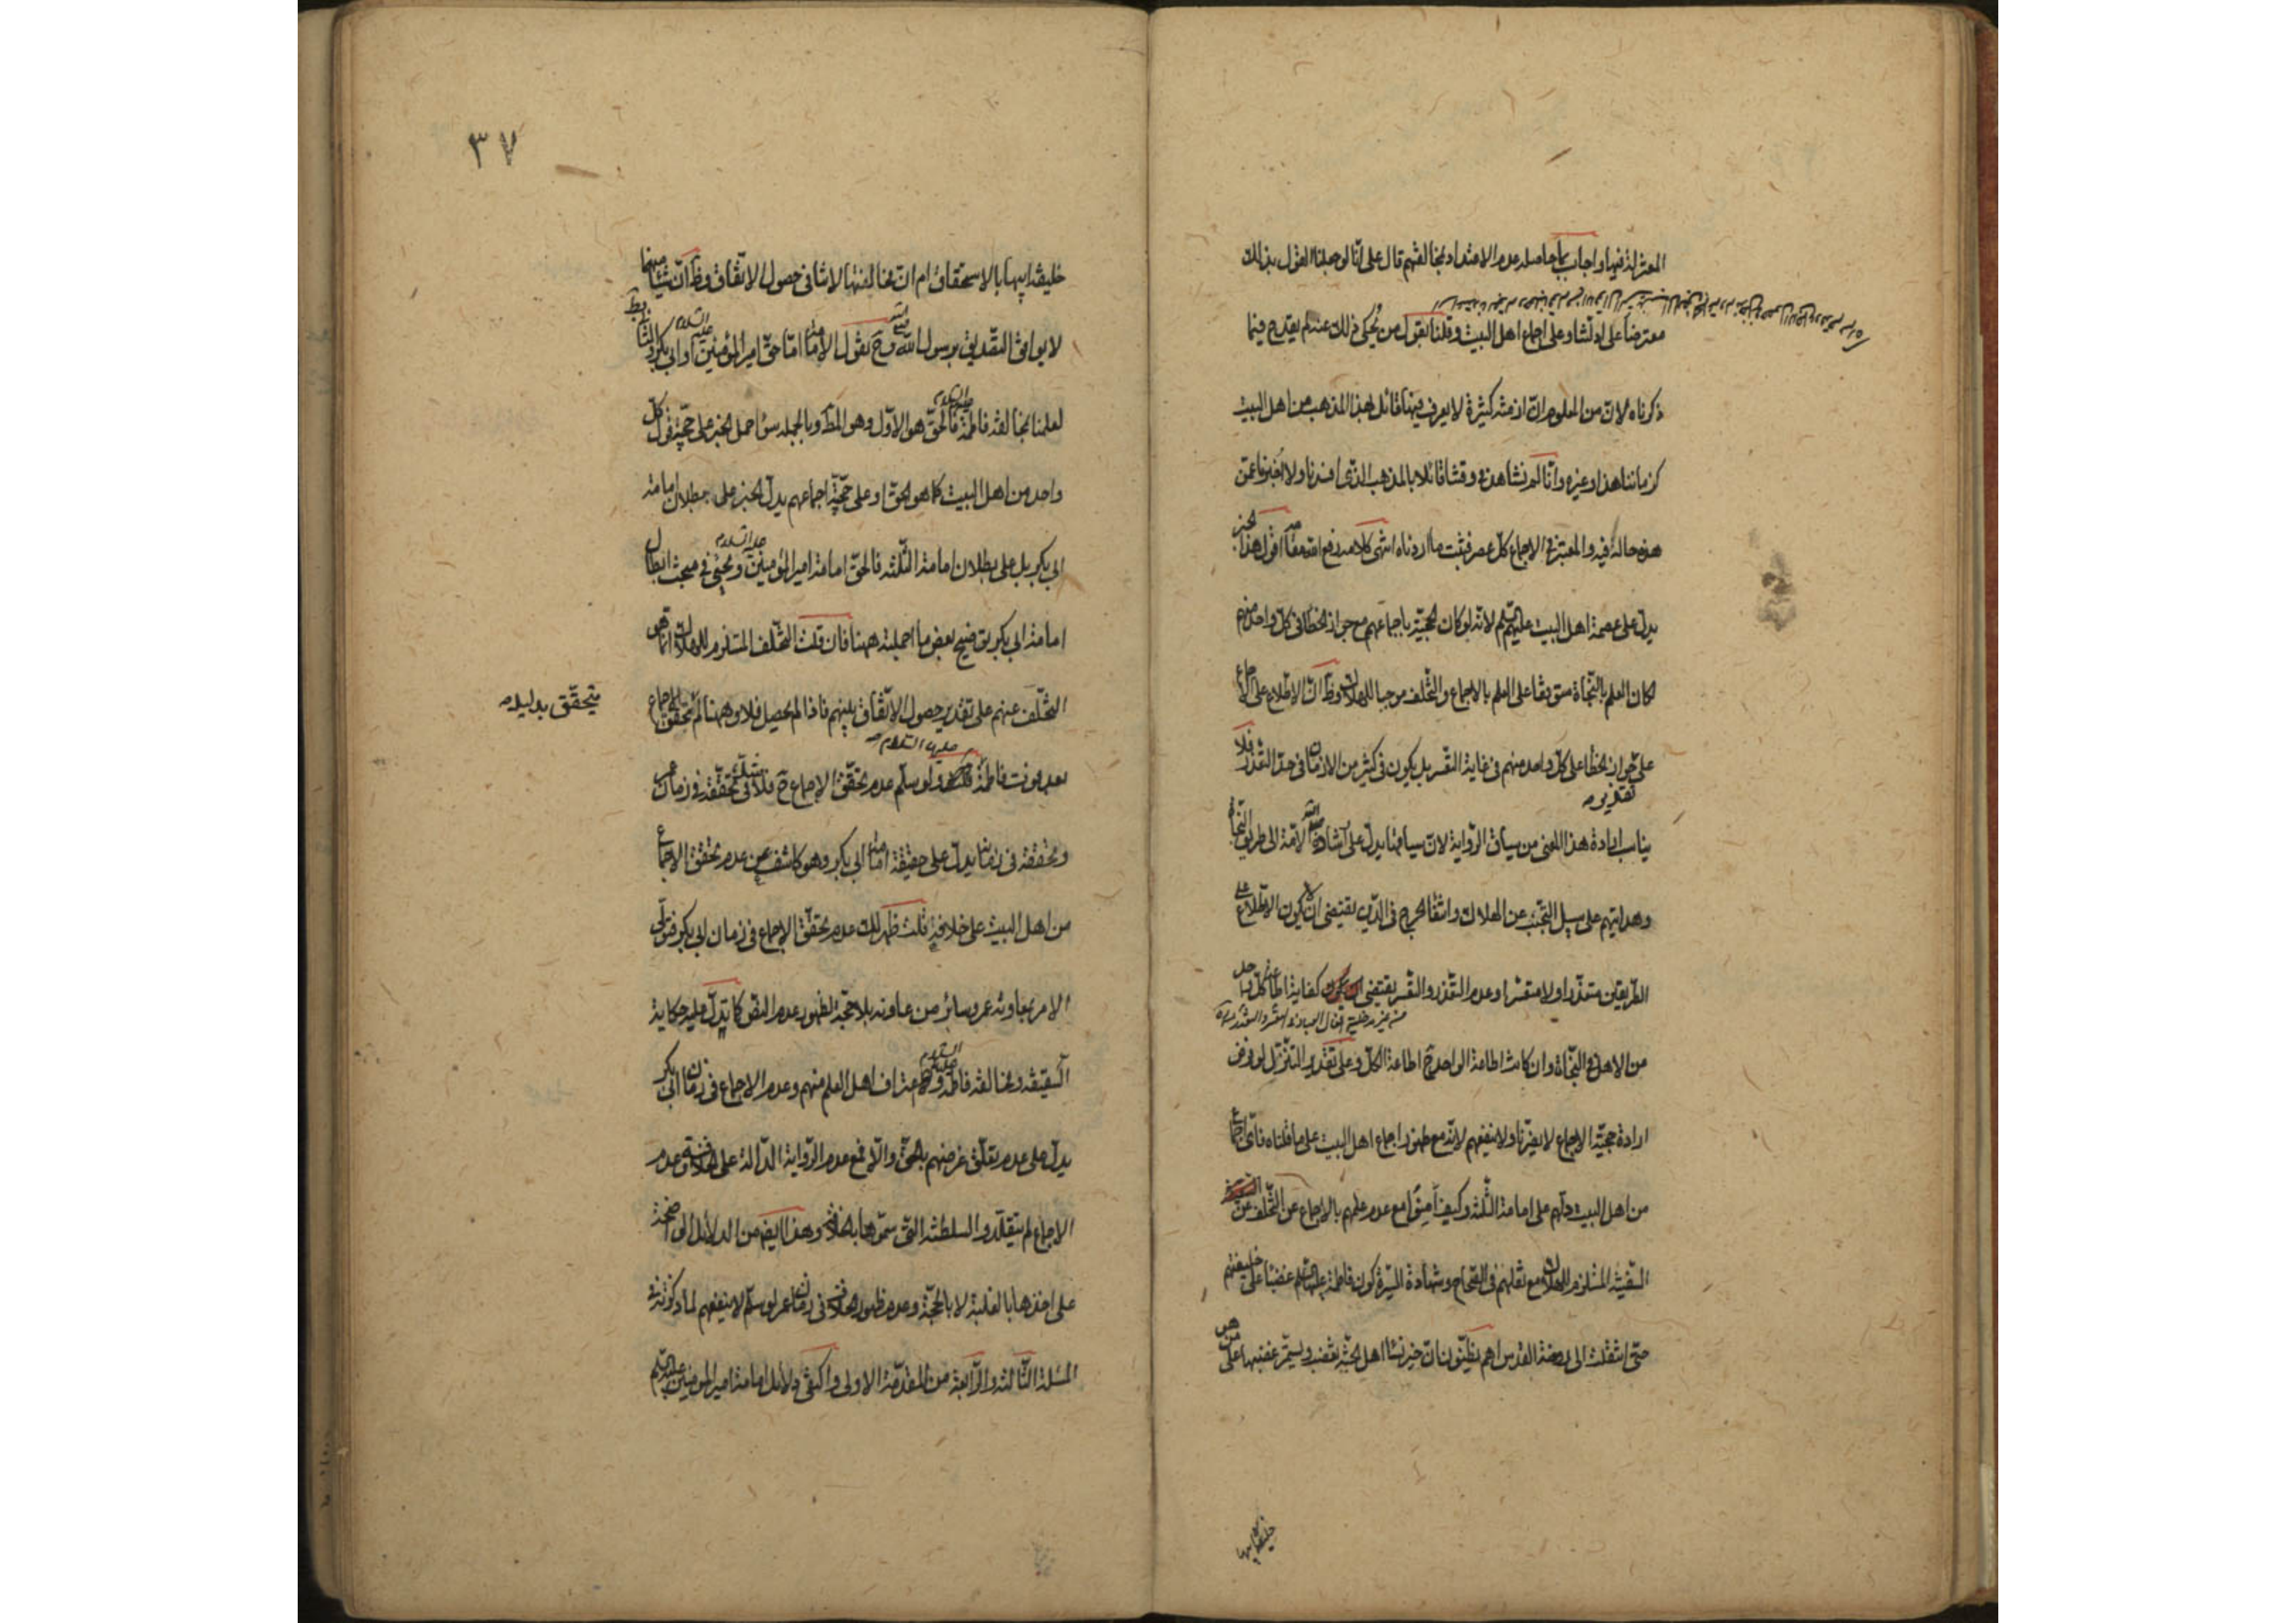 المعتزلة فيها واجاب بما حاصله عدم الاعتداد بمخالفتهم قال على انّا لو جعلنا القول بذلك
معترضا على ادلتنا وعلى اجماع اهل البيت وقلنا بقول من يُحكى ذلك عنه لم يقدح فيما
ذكرناه لانّ من المعلوم انّ ازمنة كثيرة لا يعرف فيها قائل بهذا المذهب من اهل البيت
كزماننا هذا وغيره وانّا لم نشاهد في وقتنا قائلا بالمذهب الذي افسدناه ولا اُخبرنا عمّن
هذه حاله فيه والمعتبر في الاجماع كلّ عصر فثبت ما اردناه انتهى كلامه رفع الله مقامه اقول هذا الخبر
يدلّ على عصمة اهل البيت عليهم السّلم لانّه لو كان الحجيّة باجماعهم مع جواز الخطأ في كلّ واحد منهم
لكان العلم بالنّجاة متوقفا على العلم بالاجماع والتّخلف موجبا للهلاك وظ انّ الاطّلاع على الاجماع
على جواز الخطأ على كلّ واحد منهم في غاية التعسّر بل يكون في كثير من الازمان في حدّ التعذّر فلا
تقديره
يناسب ارادة هذا المعنى من سياق الرّواية لانّ سياقها يدلّ على ارشاده صلى الله الامّة الى طريق النّجاة
وهدايتهم على سبيل التجنّب عن الهلاك وانتفاء الحرج في الدّين يقتضي ان لا يكون الاطّلاع على
الطّريقين متعذّرا ولا متعسّرا وعدم التعذّر والتعسّر يقتضي كفاية اطاعة كلّ واحد
من الاهل في النّجاة وان كانت اطاعة الواحد ح اطاعة الكلّ وعلى تقدير التنزّل لو فرض
ارادة حجيّة الاجماع لا يضرّنا ولا ينفعهم لانّه مع ظهور اجماع اهل البيت على ما قلناه فايّ اجماع
من اهل البيت دلّهم على امامة الثّلثة وكيف اَمِنُوا مع عدم علمهم بالاجماع عن التّخلف عن
السّفينة المستلزم للهلاك مع نقلهم في الصّحاح وشهادة السّيرة كون فاطمة عليها السّلم غضبا على خليفتهم
حتّى انتقلت الى روضة القدس اهم يظنّون انّ خير نساء اهل الجنّة يغضب ويستمرّ غضبها على من هو
خليفة ابيها
٣٧
خليفة ابيها بالاستحقاق ام انّ مخالفتها لا تنافي حصول الاتّفاق وظ انّ شيئا منهما
لا يوافق التصديق برسول الله صلى الله وح نقول الامام امّا حقّ امير المؤمنين عليه السّلام او ابي بكر والثاني بط
لعلمنا بمخالفة فاطمة عليها السلام فالحقّ هو الاوّل وهو المط وبالجملة سواء حمل الخبر على حجيّة قول كلّ
واحد من اهل البيت كما هو الحقّ او على حجيّة اجماعهم يدلّ الخبر على بطلان امامة
ابي بكر بل على بطلان امامة الثّلثة فالحقّ امامة امير المؤمنين عليه السلام ويجيئ في مبحث ابطال
امامة ابي بكر توضيح بعض ما اجملته ههنا فان قلت التّخلف المستلزم للهلاك انّما هو
التّخلّف عنهم على تقدير حصول الاتّفاق بينهم فاذا لم يحصل فلا وههنا لم يتحقّق الاجماع
يتحقّق بدليله
عليها السّلام
بعد موت فاطمة ولو سلّم عدم تحقّق الاجماع ح فلا شك في تحقّقه في زمان عمر
وتحققه في زمانه يدلّ على حقيقة امامة ابي بكر وهو كاشف عن عدم تحقق الاجماع
من اهل البيت على خلافه قلت ظهر لك عدم تحقّق الاجماع في زمان ابي بكر فتولّي
الامر بمعاونة عمر وسائر من عاونه بلا حجّة لظهور عدم النصّ كما يدلّ عليه حكاية
السّقيفة ومخالفة فاطمة عليها السلام واعتراف اهل العلم منهم وعدم الاجماع في زمان ابي بكر
يدلّ على عدم تعلّق غرضهم بالحقّ والّا فمع عدم الرّواية الدّالة على خلافته وعدم
الاجماع لم يتقلّدوا السلطنة التي سمّوها بالخلافة وهذا ايض من الدلائل الواضحة
على اخذها بالغلبة لا بالحجّة وعدم ظهور الخلاف في زمان عمر لو سلّم لا ينفعهم لما ذكرته في
المسئلة الثّالثة والرّابعة من المقدّمة الاولى واكتفي دلائل امامة امير المومنين عليه السّلم